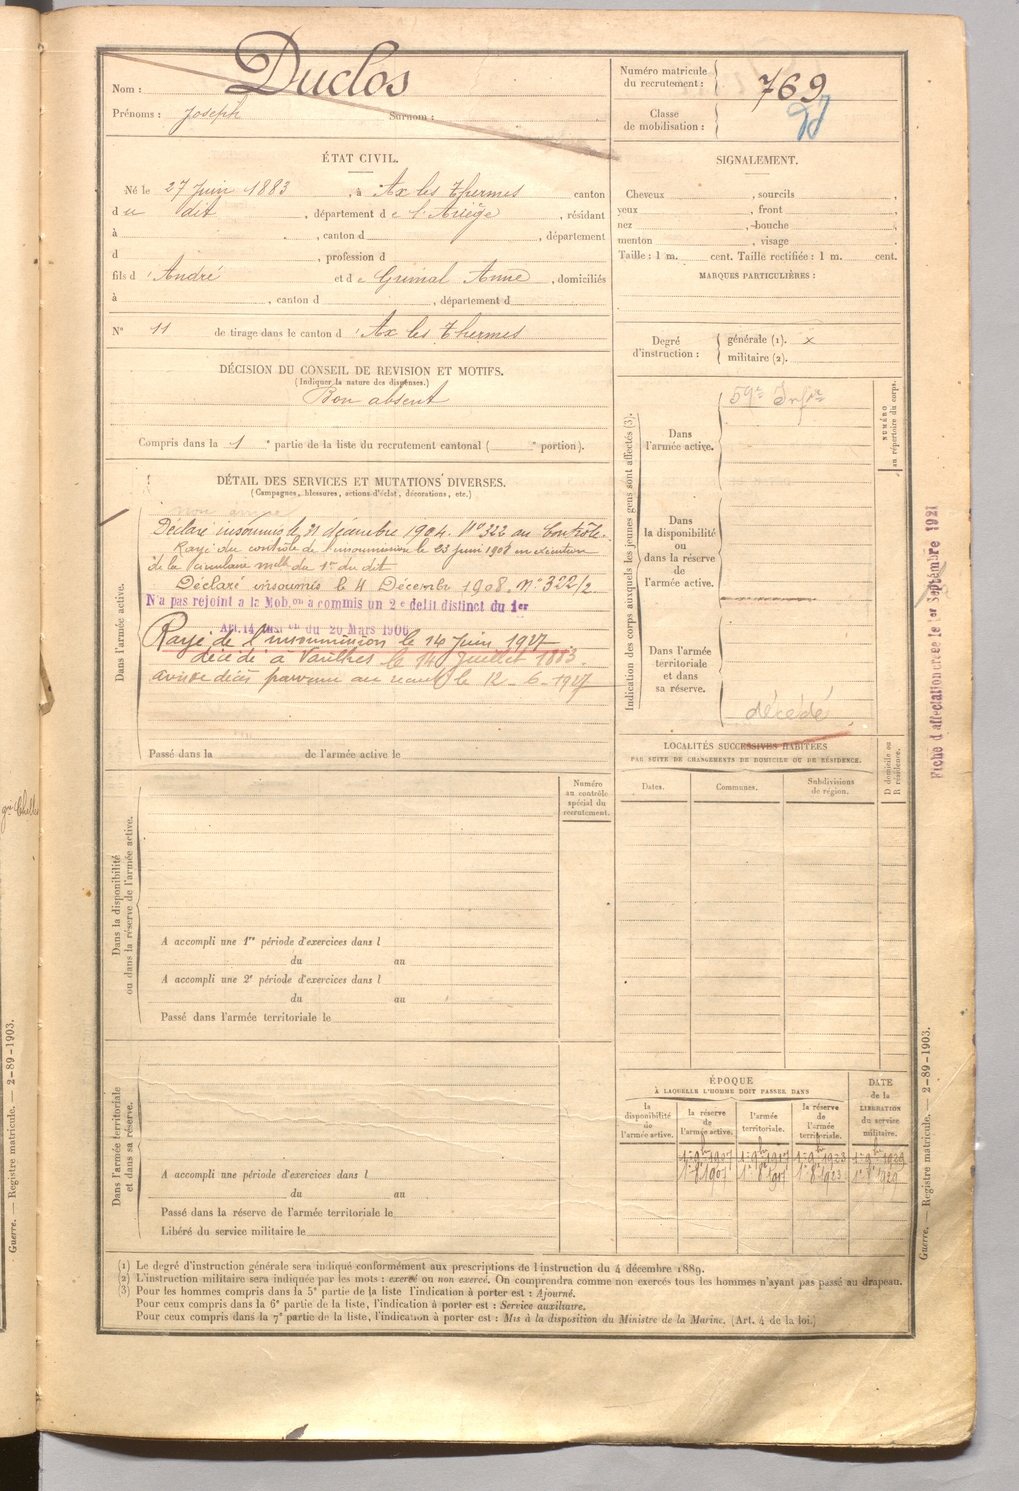 Nom : Duclos
Prénoms : Joseph Surnom :
Numéro matricule
du recrutement : 769
Classe
de mobilisation :
ÉTAT CIVIL.
Né le 27 Juin 1883, à Ax les Thermes canton
d u dit, département d e l'Ariège, résidant
à , canton d , département
d , profession d
fils d 'André et d e Grimal Anne, domiciliés
à , canton d , département d
N° 11 de tirage dans le canton d 'Ax les Thermes
DÉCISION DU CONSEIL DE REVISION ET MOTIFS.
(Indiquer la nature des dispenses.)
Bon absent
Compris dans la 1 e partie de la liste du recrutement cantonal ( e portion).
SIGNALEMENT.
Cheveux , sourcils ,
yeux , front ,
nez , bouche ,
menton , visage
Taille : 1 m. cent. Taille rectifiée : 1 m. cent.
MARQUES PARTICULIÈRES :
Degré
d'instruction :
générale (1). x
militaire (2).
DÉTAIL DES SERVICES ET MUTATIONS DIVERSES.
(Campagnes, blessures, actions d'éclat, décorations, etc.)
Dans l'armée active.
non arrivé
Déclaré insoumis le 31 décembre 1904. N° 322 au Contrôle.
Rayé du contrôle de l'insoumission le 23 Juin 1908 en exécution
de la Circulaire melle du 1er du dit
Déclaré insoumis le 4 Décembre 1908. N° 322/2
N'a pas rejoint a la Mob.on a commis un 2e délit distinct du 1er
Art. 14 du 20 Mars 1906
Rayé de l'insoumission le 14 Juin 1927
décédé à le 14 Juillet 1883.
avis de décès parvenu au recrut le 12-6-1927
Passé dans la de l'armée active le
Indication des corps auxquels les jeunes gens sont affectés (3).
Dans
l'armée active.
59e Infie
NUMÉRO
au répertoire du corps.
Dans
la disponibilité
ou
dans la réserve
de
l'armée active.
Dans l'armée
territoriale
et dans
sa réserve.
décédé
Fiche d'affectation créée le 1er Septembre 1921
LOCALITÉS SUCCESSIVES HABITÉES
PAR SUITE DE CHANGEMENTS DE DOMICILE OU DE RÉSIDENCE.
Dates.
Communes.
Subdivisions
de région.
D domicile ou
R résidence.
Dans la disponibilité
ou dans la réserve de l'armée active.
Numéro
au contrôle
spécial du
recrutement.
A accompli une 1re période d'exercices dans l
du au
A accompli une 2e période d'exercices dans l
du au
Passé dans l'armée territoriale le
Dans l'armée territoriale
et dans sa réserve.
A accompli une période d'exercices dans l
du au
Passé dans la réserve de l'armée territoriale le
Libéré du service militaire le
ÉPOQUE
À LAQUELLE L'HOMME DOIT PASSER DANS
la
disponibilité
de
l'armée active.
la réserve
de
l'armée active.
l'armée
territoriale.
la réserve
de
l'armée
territoriale.
DATE
de la
LIBÉRATION
du service
militaire.
1er 9bre 1907 1er 9bre 1917 1er 9bre 1923 1er 9bre 1929
(1) Le degré d'instruction générale sera indiqué conformément aux prescriptions de l'instruction du 4 décembre 1889.
(2) L'instruction militaire sera indiquée par les mots : exercé ou non exercé. On comprendra comme non exercés tous les hommes n'ayant pas passé au drapeau.
(3) Pour les hommes compris dans la 5e partie de la liste l'indication à porter est : Ajourné.
Pour ceux compris dans la 6e partie de la liste, l'indication à porter est : Service auxiliaire.
Pour ceux compris dans la 7e partie de la liste, l'indication à porter est : Mis à la disposition du Ministre de la Marine. (Art. 4 de la loi.)
Guerre. — Registre matricule. — 2-89-1903.
Guerre. — Registre matricule. — 2-89-1903.